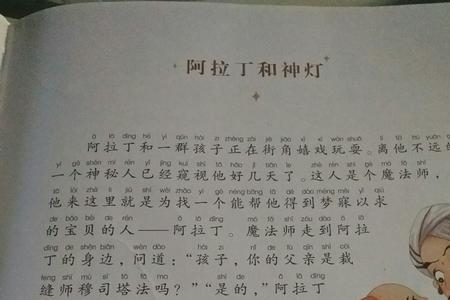 阿拉丁和神灯
ā lā dīng hé yì qún hái zi zhèng zài jiē jiǎo xī xì wán shuǎ lí tā
阿拉丁和一群孩子正在街角嬉戏玩耍。离他不远的
yí gè shén mì rén yǐ jīng kuī shì tā hǎo jǐ tiān le zhè rén shì gè mó fǎ shī
一个神秘人已经窥视他好几天了。这人是个魔法师，
tā lái zhè lǐ jiù shì wèi zhǎo yí gè néng bāng tā dé dào mèng mèi yǐ qiú
他来这里就是为找一个能帮他得到梦寐以求
de bǎo bèi de rén ā lā dīng mó fǎ shī zǒu dào ā lā
的宝贝的人——阿拉丁。魔法师走到阿拉
dīng de shēn biān wèn dào hái zi nǐ de fù qīn shì cái
丁的身边，问道：“孩子，你的父亲是裁
feng shī mù sī tǎ fǎ ma shì de ā lā dīng
缝师穆司塔法吗？”“是的，”阿拉丁